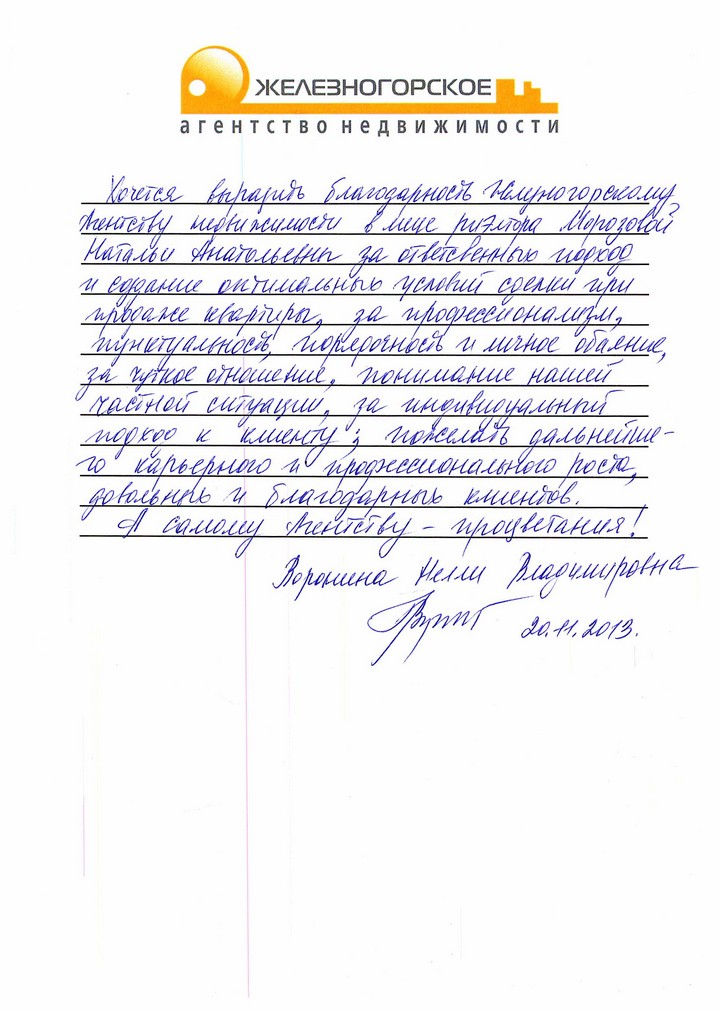 ЖЕЛЕЗНОГОРСКОЕ
агентство недвижимости
Хочется выразить благодарность Железногорскому
Агентству недвижимости в лице риэлтора Морозовой
Натальи Анатольевны за ответсвенный подход
и создание оптимальных условий сделки при
продаже квартиры, за профессионализм,
пунктуальность, порядочность и личное обаяние,
за чуткое отношение, понимание нашей
частной ситуации, за индивидуальный
подход к клиенту; пожелать дальнейше-
го карьерного и профессионального роста,
довольных и благодарных клиентов.
А самому Агентству - процветания!
Воронина Нелли Владимировна
20.11.2013.